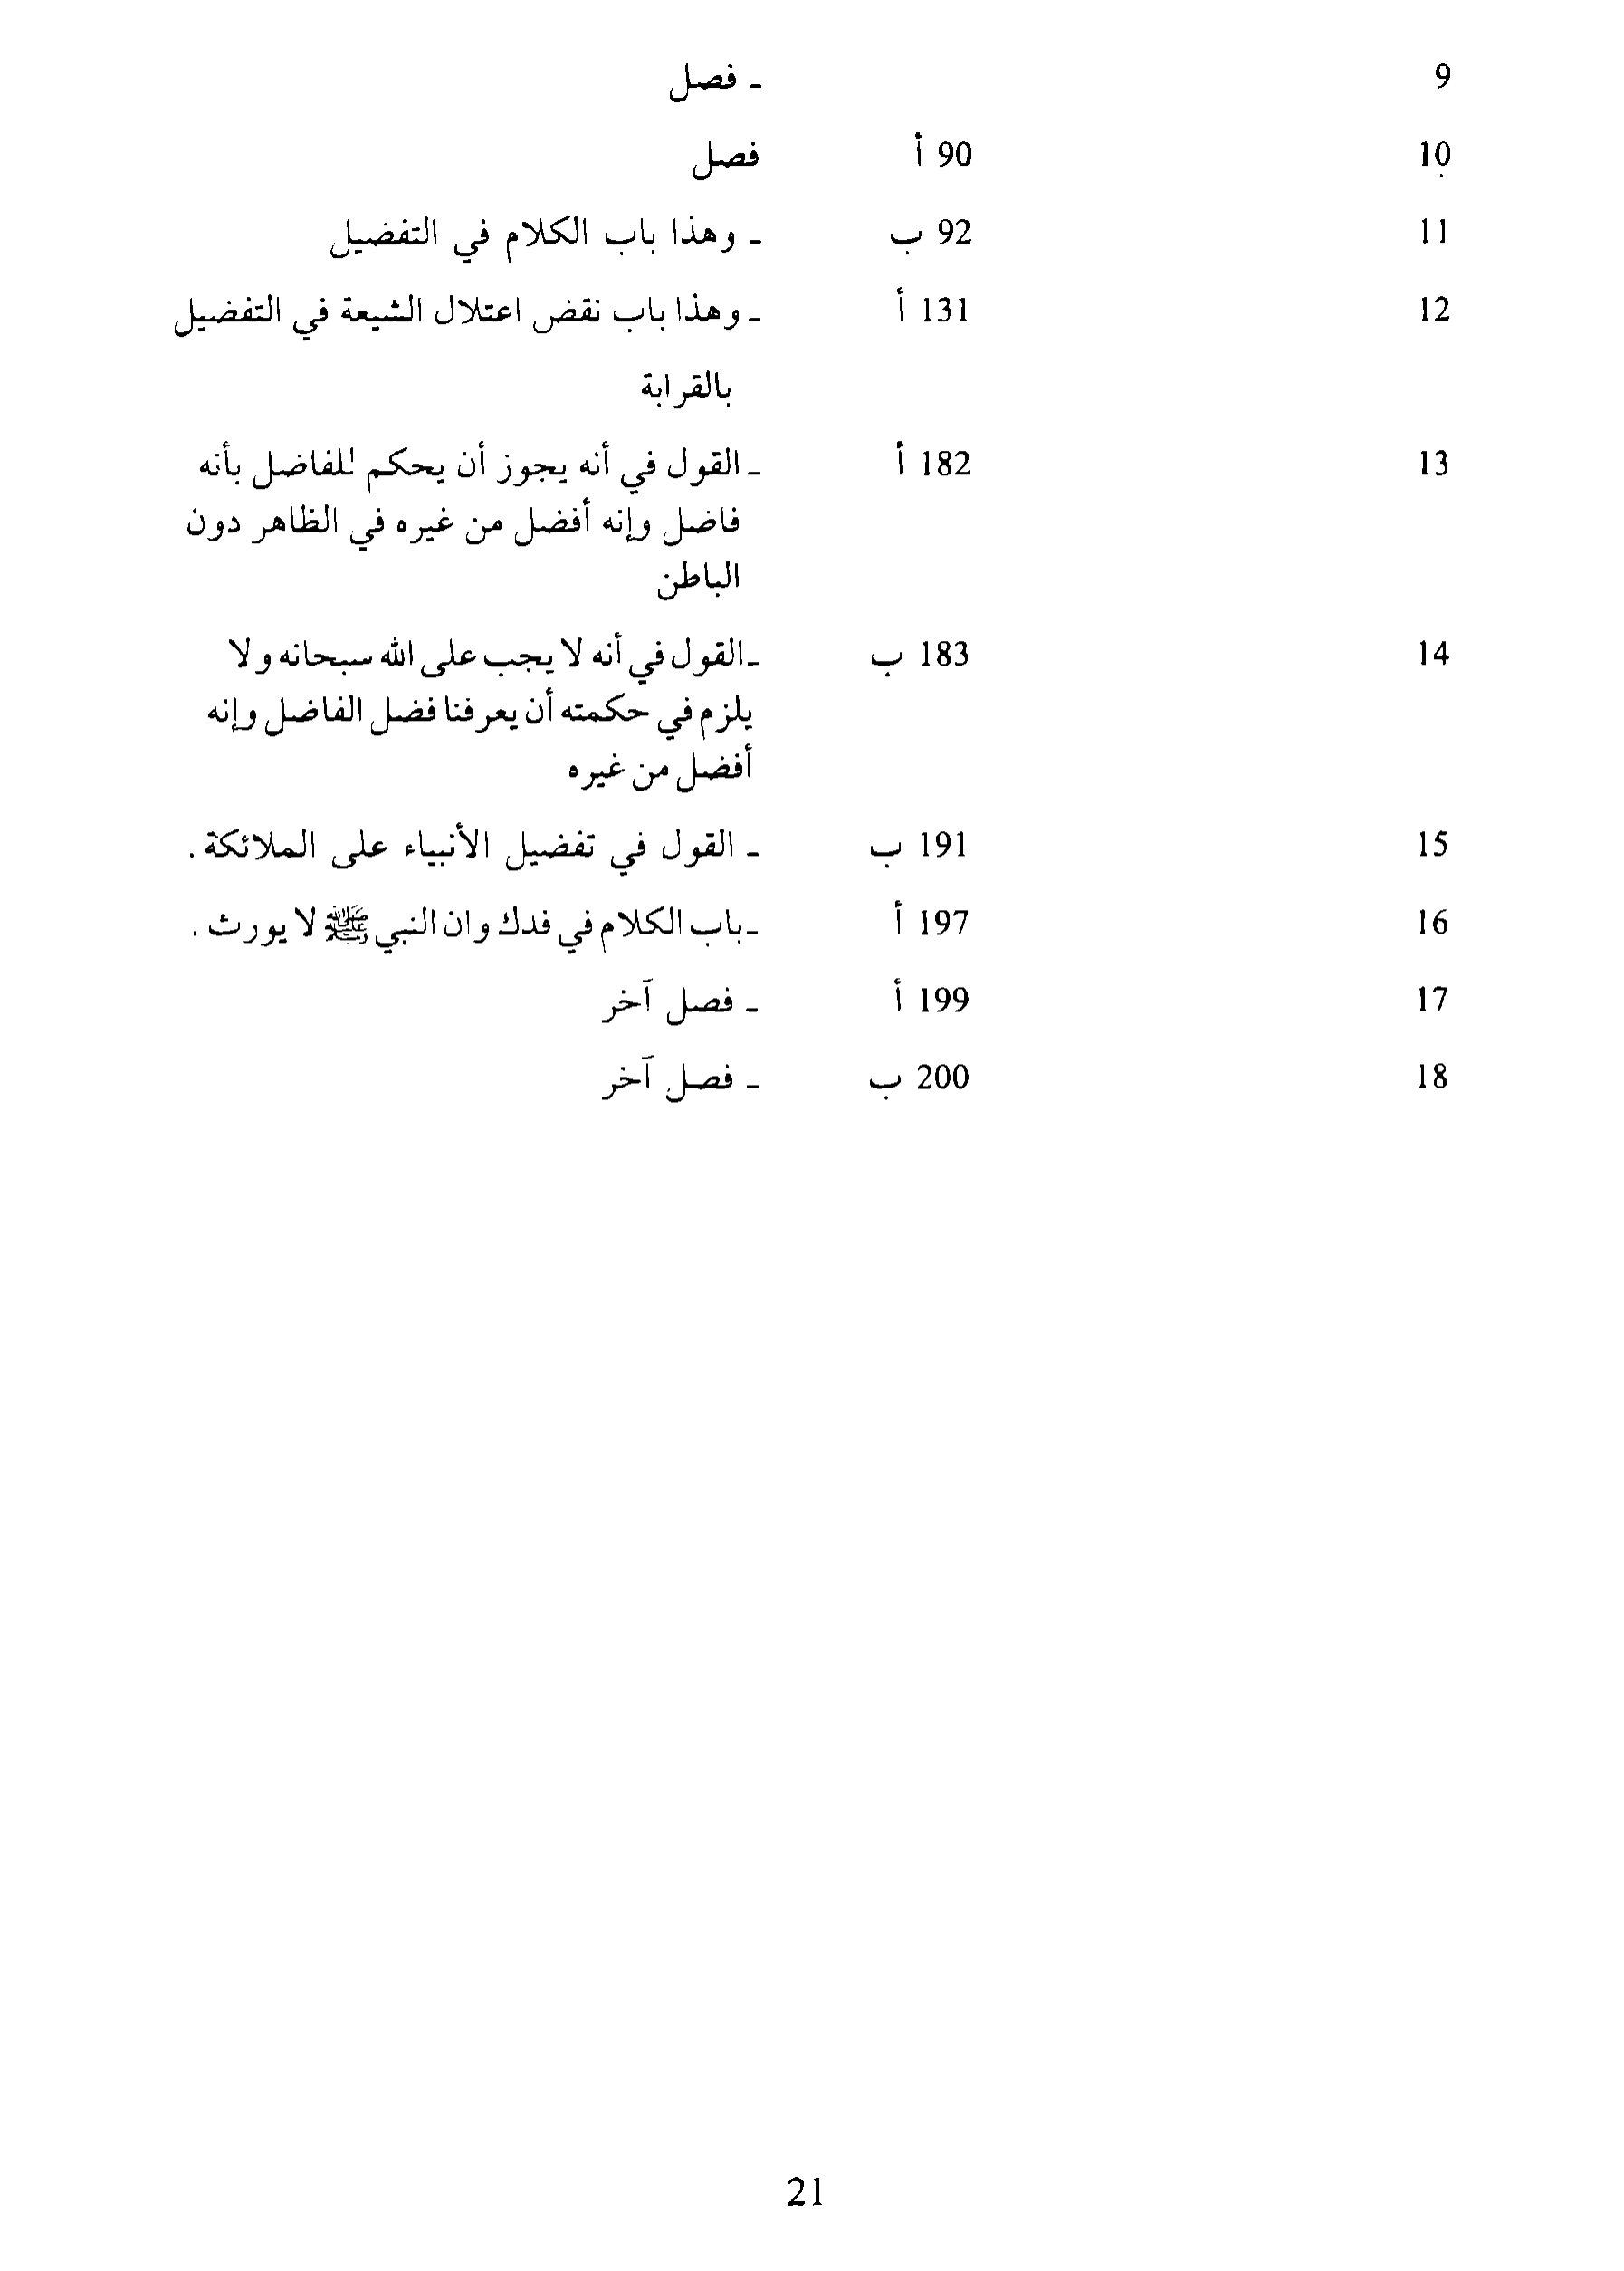 9 - فصل
10 90 أ فصل
11 92 ب - وهذا باب الكلام في التفضيل
12 131 أ - وهذا باب نقض اعتلال الشيعة في التفضيل
بالقرابة
13 182 أ - القول في أنه يجوز أن يحكم للفاضل بأنه
فاضل وإنه أفضل من غيره في الظاهر دون
الباطن
14 183 ب - القول في أنه لا يجب على الله سبحانه ولا
يلزم في حكمته أن يعرفنا فضل الفاضل وإنه
أفضل من غيره
15 191 ب - القول في تفضيل الأنبياء على الملائكة .
16 197 أ - باب الكلام في فدك وان النبي ﷺ لا يورث .
17 199 أ - فصل آخر
18 200 ب - فصل آخر
21